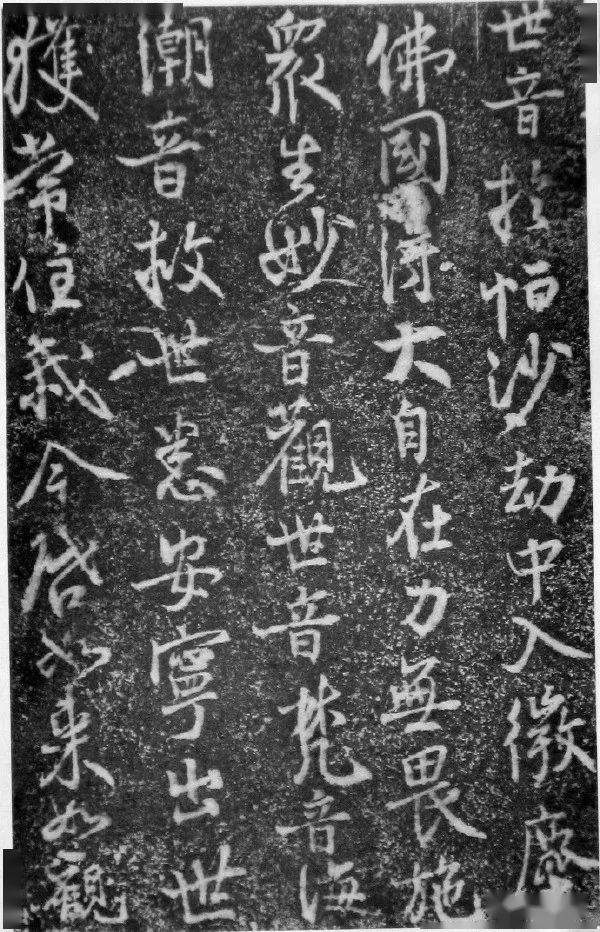 世音於恒沙劫中入微塵
佛國得大自在力無畏施
眾生妙音觀世音梵音海
潮音救世悉安寧出世
獲常住我今啟如來如觀